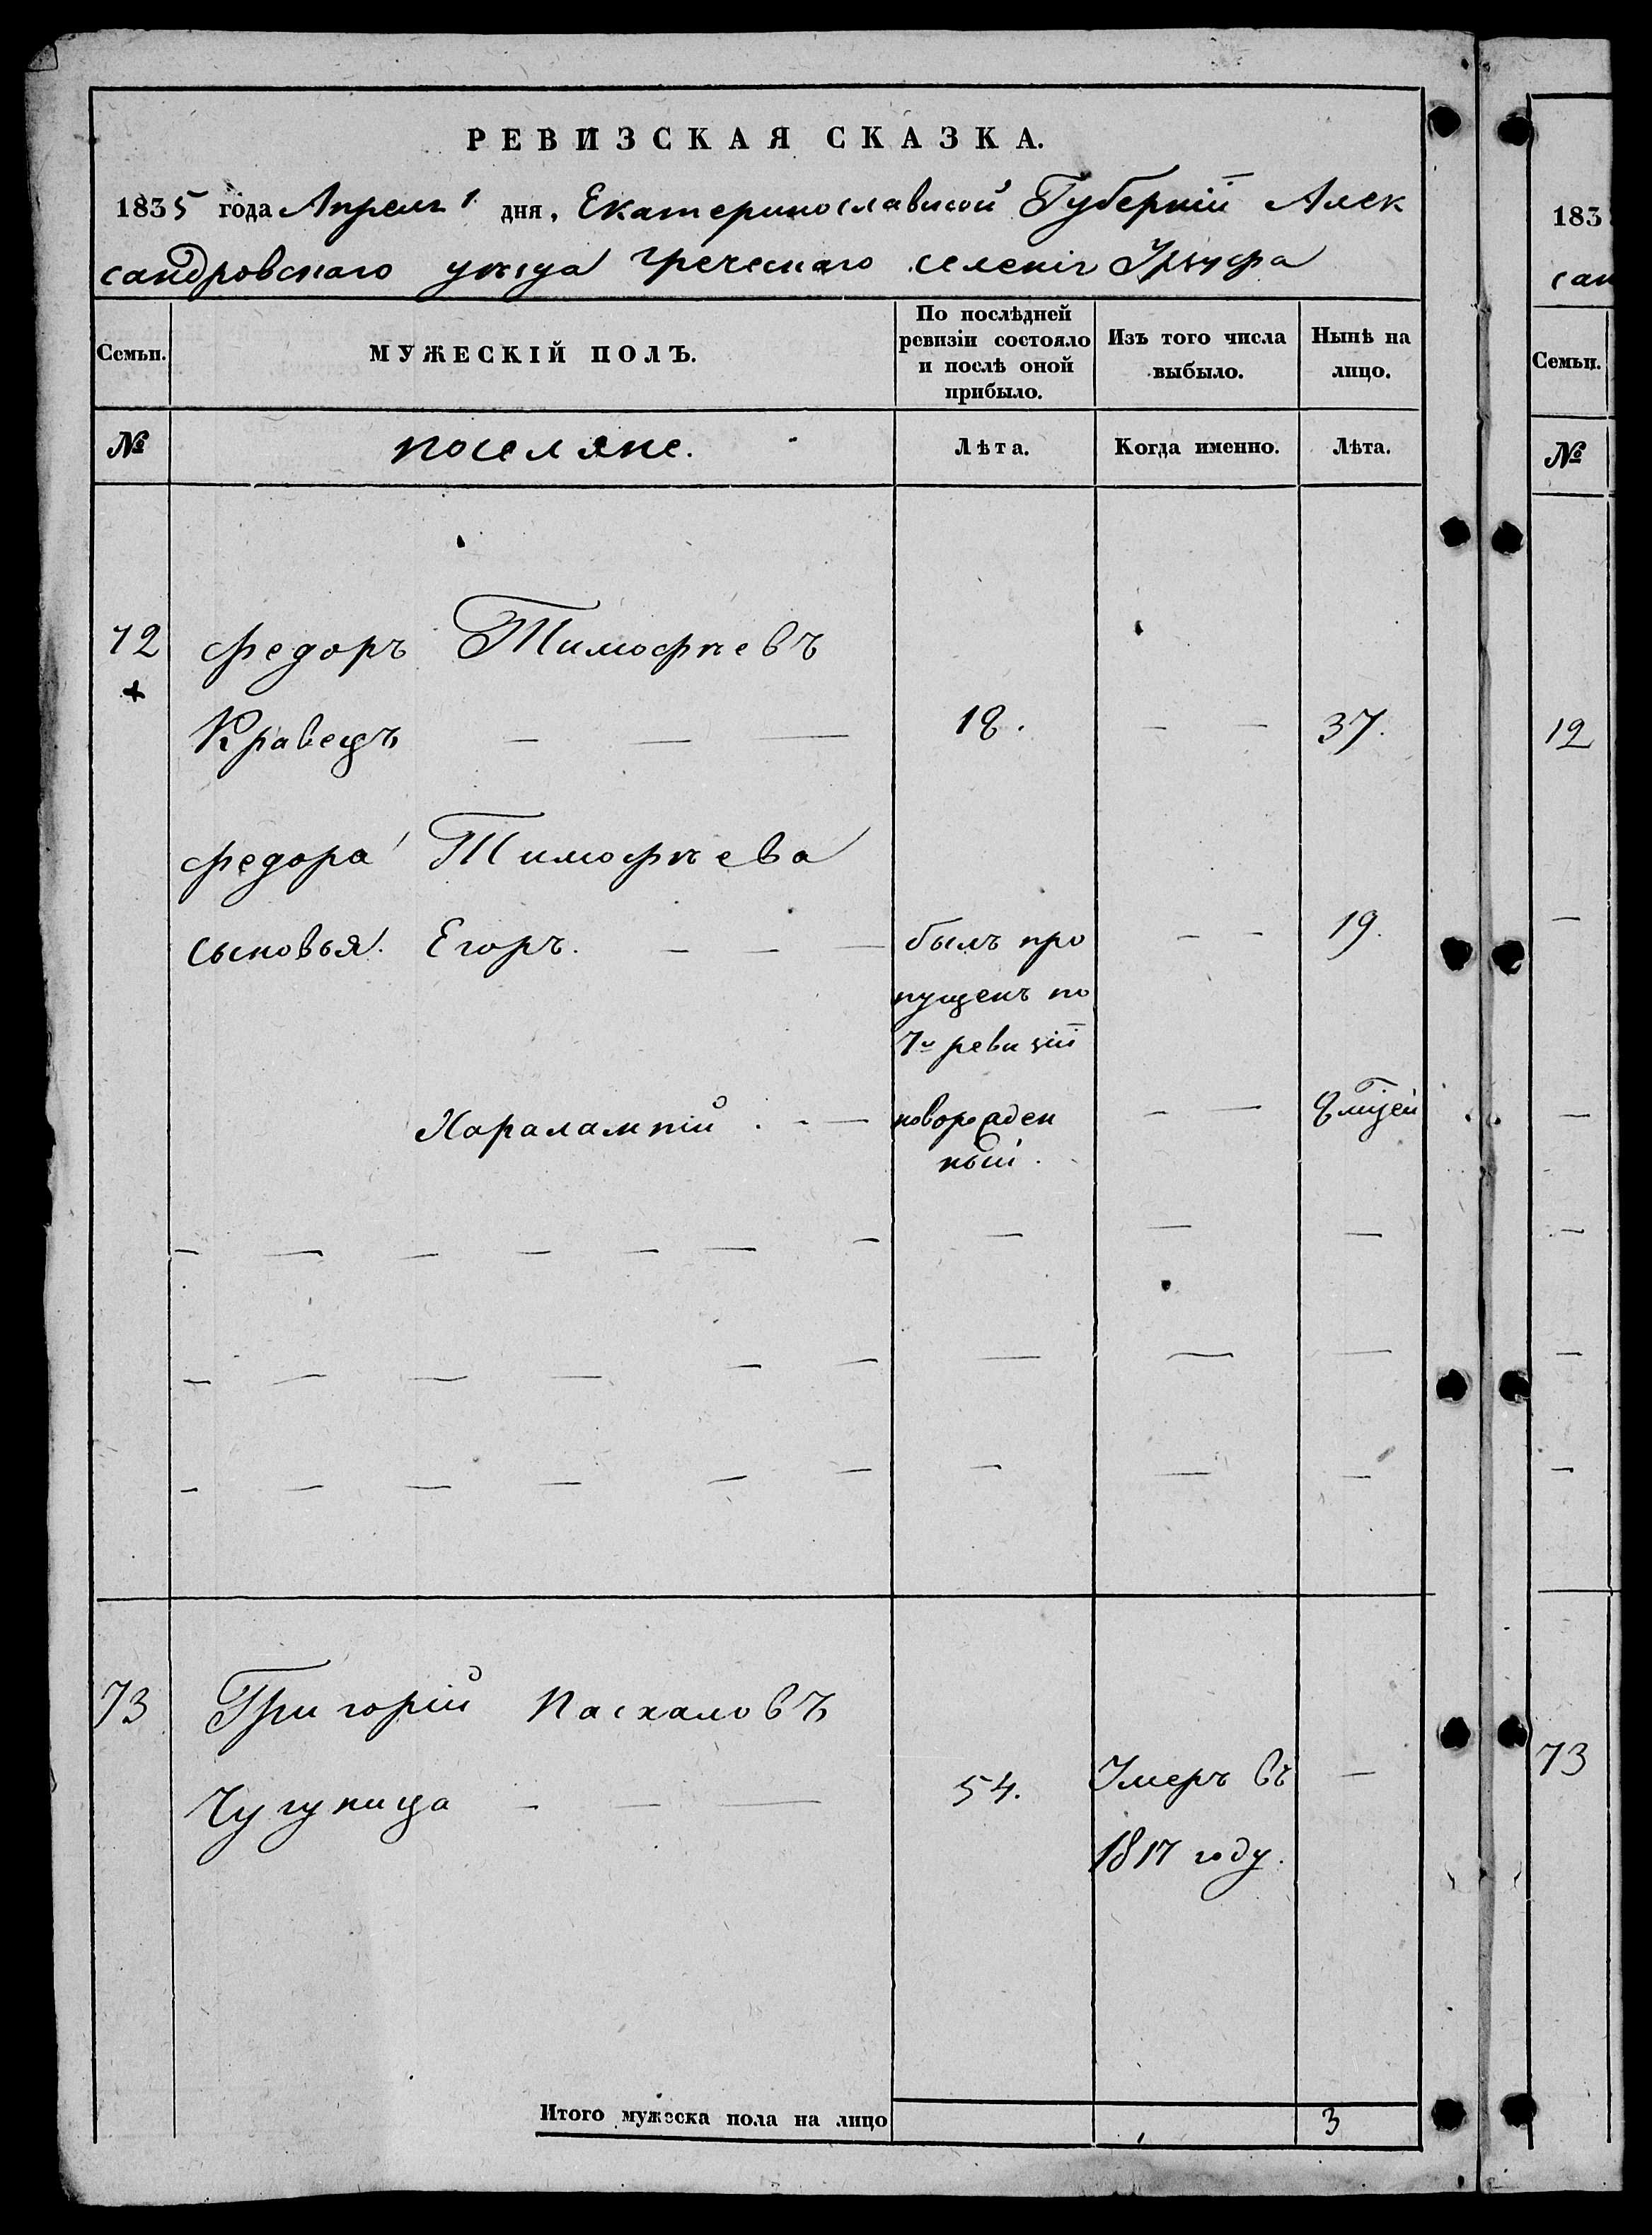 РЕВИЗСКАЯ СКАЗКА.
1835 года Апреля 1 дня, Екатеринославской Губерніи Алек
сандровскаго уѣзда Греческаго селенія Урзуфа
Семьи. МУЖЕСКІЙ ПОЛЪ. По послѣдней ревизіи состояло и послѣ оной прибыло. Изъ того числа выбыло. Нынѣ на лицо.
№ поселяне. Лѣта. Когда именно. Лѣта.
72 Федоръ Тимофѣевъ
Кравецъ — — — 18. — — 37.
Федора Тимофѣева
сыновья. Егоръ. — — — былъ про — — 19.
пущенъ по
7й ревизіи
Харалампій . - — новорожден — — 8 мцей
ный.
— — — — — — — — — —
— — — — — — — — —
— — — — — — — — —
73 Григорій Пасхаловъ
Чугуница — — — 54. Умеръ въ —
1817 году.
Итого мужеска пола на лицо 3
183
сан
Семьи.
№
12
—
—
—
—
—
73